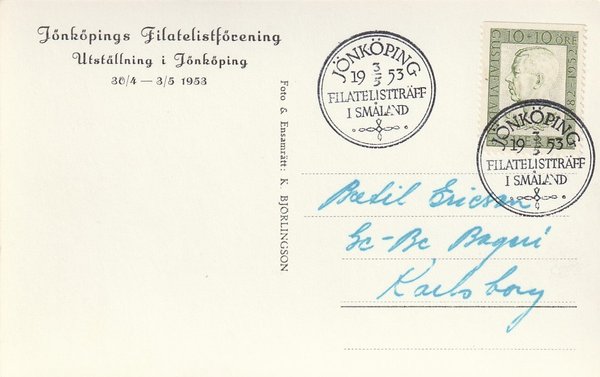 Jönköpings Filatelistförening
Utställning i Jönköping
30/4 — 3/5 1953
Foto & Ensamrätt: K BJÖRLINGSON
JÖNKÖPING
19 3/5 53
FILATELISTTRÄFF
I SMÅLAND
10+10 ÖRE
JÖNKÖPING
19 3/5 53
FILATELISTTRÄFF
I SMÅLAND
Bertil Ericson
Karlsborg